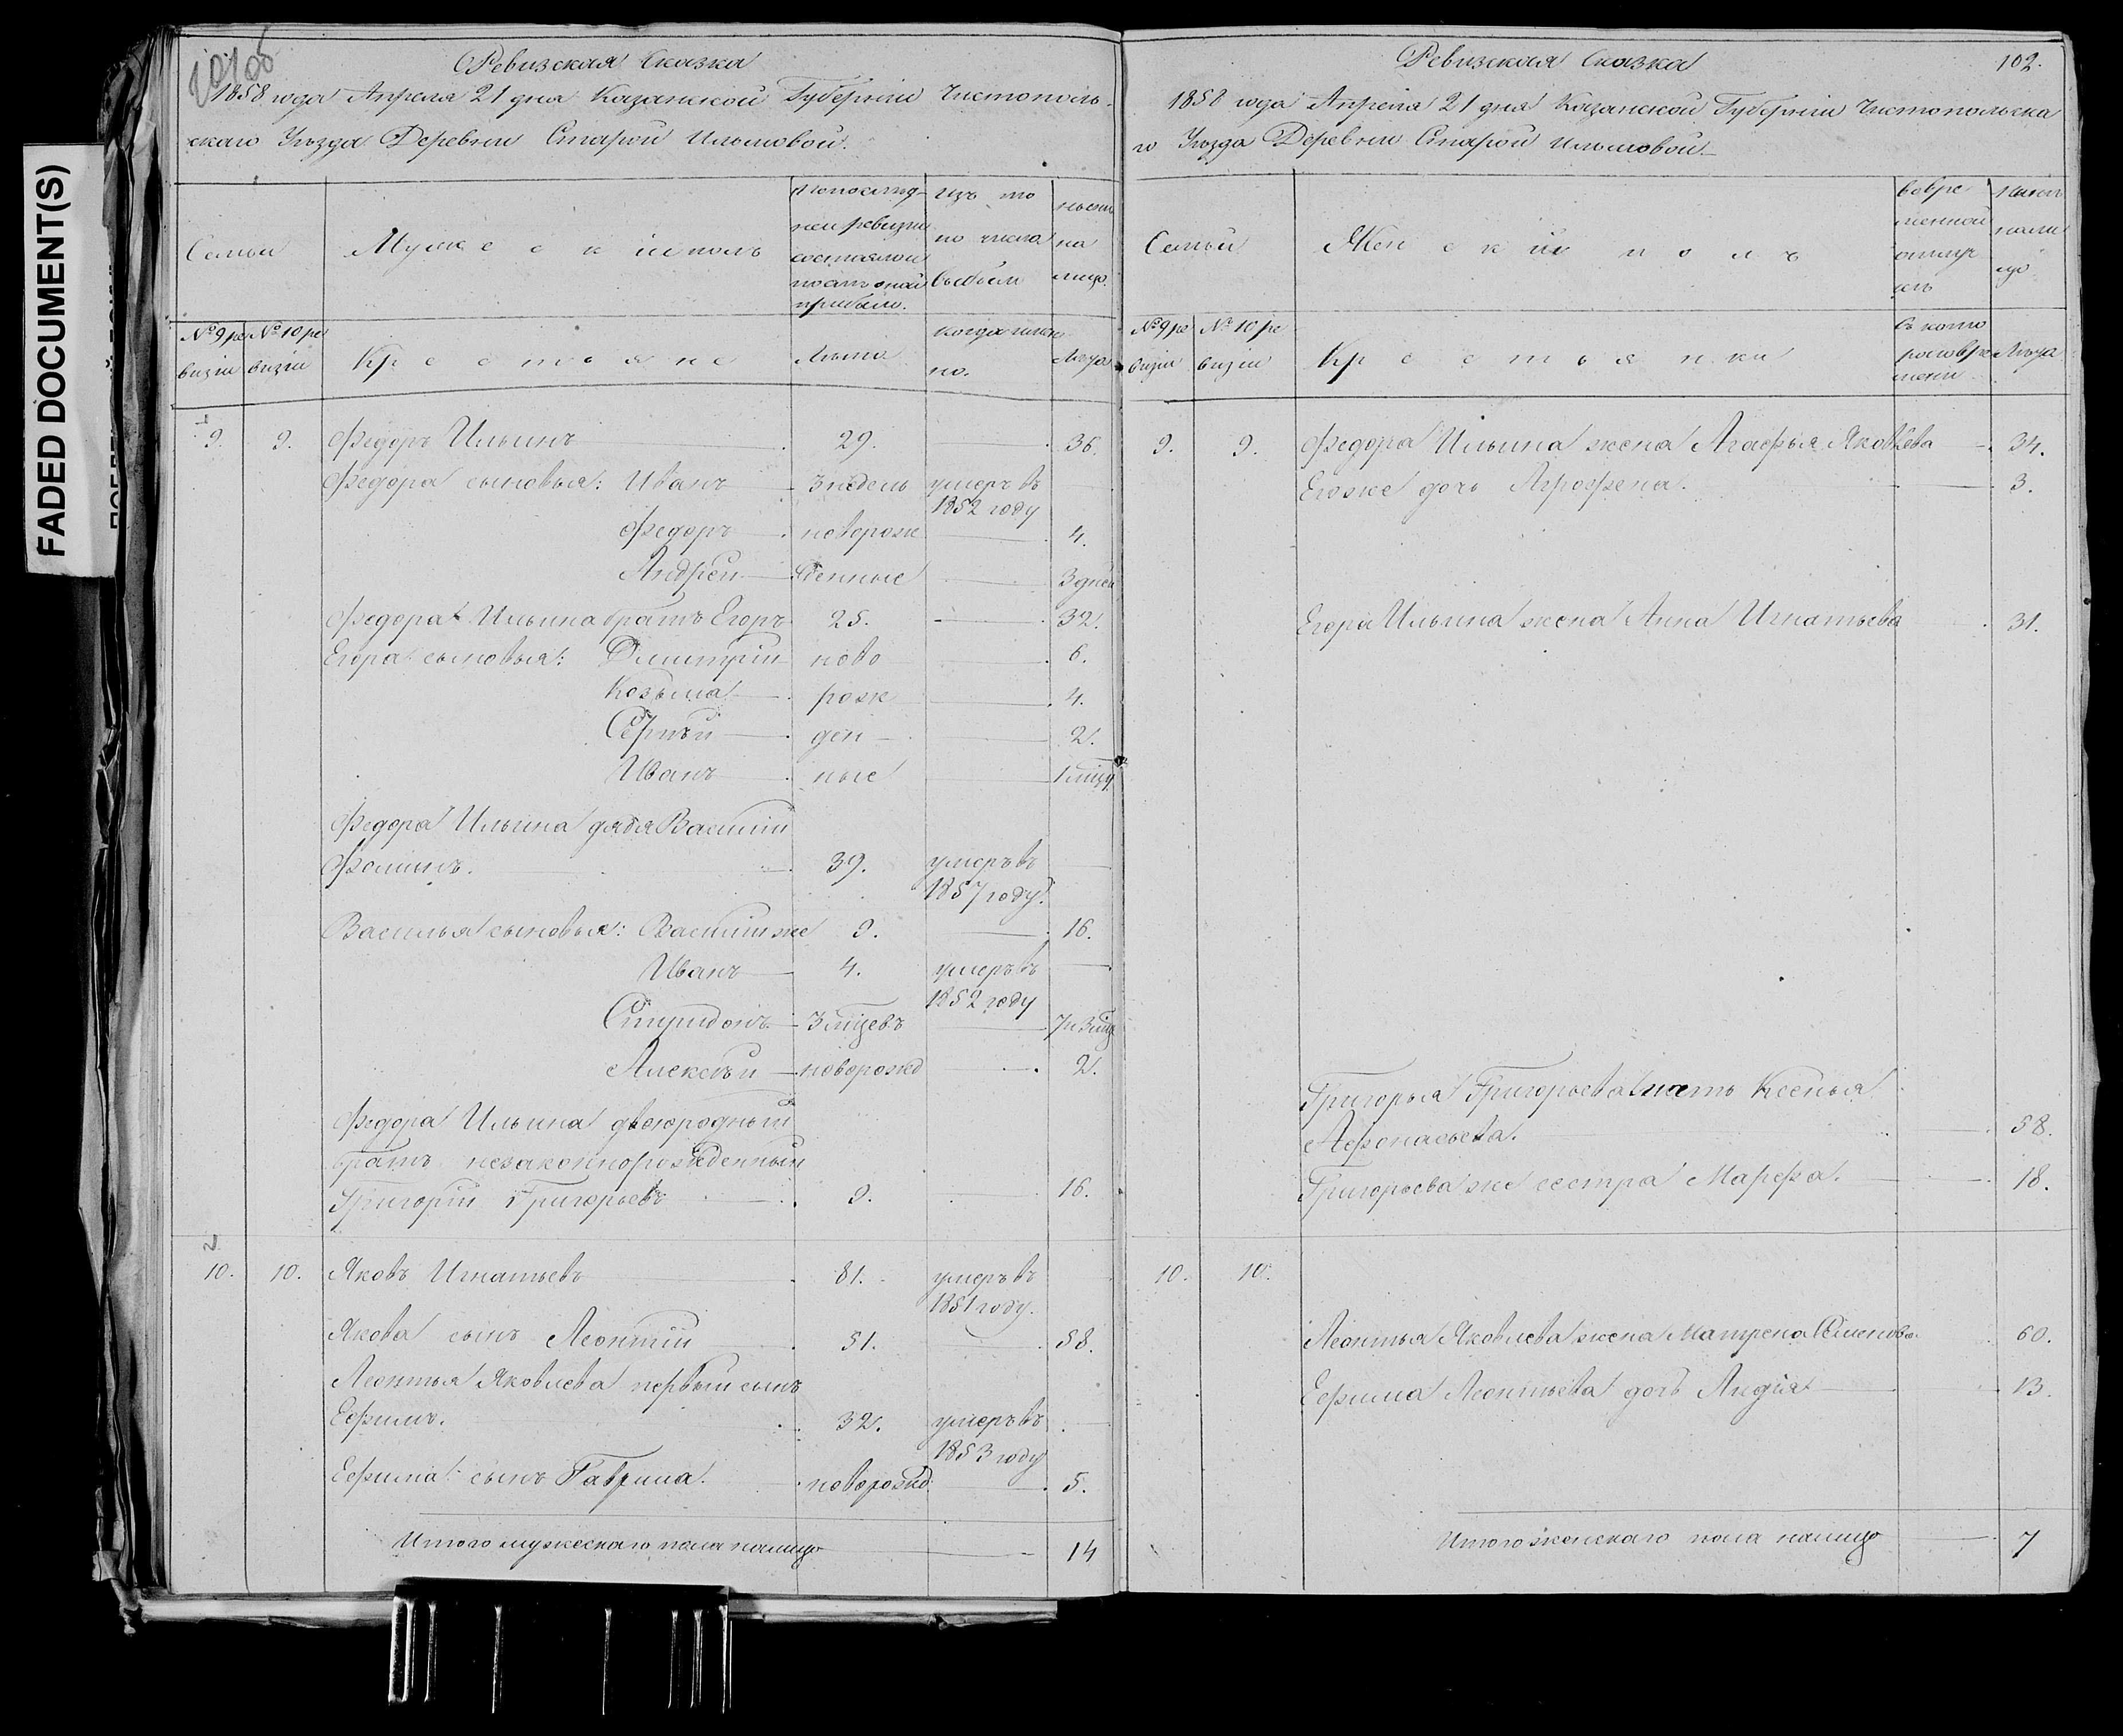 FADED DOCUMENT(S)
Ревизская Сказка
1858 года Апреля 21 дня Казанской Губерніи Чистополь-
скаго Уѣзда Деревни Старой Ильмовой.
Семьи
Мужескій полъ
Попослѣд-
ней ревизіи
состояло и
послѣ оной
прибыло.
Изъ то
го числа
выбыли
нынѣ
на
лицо.
№ 9 ре
визіи
№ 10 ре
визіи
Крестьяне
Лѣта
когда имен
но.
Лѣта
9. 9. Федоръ Ильинъ 29. 36.
Федора сыновья: Иванъ 3 недель умеръ въ
1852 году
Федоръ новорож 4.
Андрей денные 3 дней
Федора Ильина братъ Егоръ 25. 32.
Егора сыновья: Дмитрій ново 6.
Козьма рож 4.
Сергѣй ден 2.
Иванъ ные 1 мѣся
Федора Ильина дядя Василій
Фоминъ. 39. умеръ въ
1857 году.
Василья сыновья: Василій же 9. 16.
Иванъ 4. умеръ въ
1852 году
Спиридонъ 3 мѣсяцевъ 7 и 3 мѣся
Алексѣй новорожд 2.
Федора Ильина двоюродный
братъ незаконнорожденный
Григорій Григорьевъ 9. 16.
10. 10. Яковъ Игнатьевъ 81. умеръ въ
1851 году.
Якова сынъ Леонтій 51. 58.
Леонтья Яковлева первый сынъ
Ефимъ. 32. умеръ въ
1853 году
Ефима сынъ Гаврила. новорожд. 5.
Итого мужескаго пола налицо 14
Ревизская Сказка 102.
1858 года Апреля 21 дня Казанской Губерніи Чистопольска
го Уѣзда Деревни Старой Ильмовой
Семьи
Женскій полъ
вовре-
менной
отлуч
кѣ
нынѣ
нали
цо
№ 9 ре
визіи
№ 10 ре
визіи
Крестьянки
съ кото
раго вре
мени
Лѣта
9. 9. Федора Ильина жена Агафья Яковлева 34.
Егоже дочь Агрофена. 3.
Егора Ильина жена Анна Игнатьева 31.
Григорья Григорьева мать Ксенья
Афонасьева. 58.
Григорьева же сестра Марфа. 18.
10. 10.
Леонтья Яковлева жена Матрена Семенова 60.
Ефима Леонтьева дочь Лидія 13.
Итого женскаго пола налицо 7